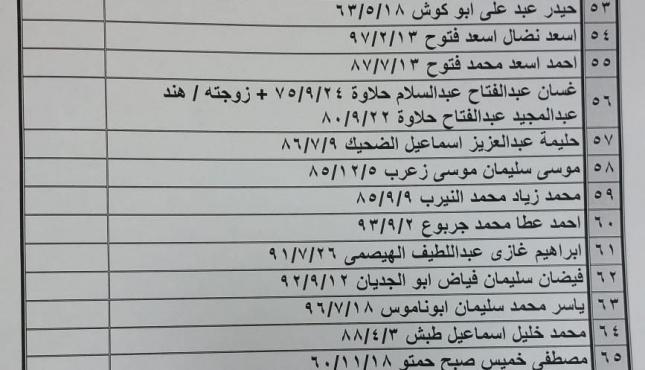 ٥٣ حيدر عبد على ابو كوش ٦٣/٥/١٨
٥٤ اسعد نضال اسعد فتوح ٩٧/٢/١٣
٥٥ احمد اسعد محمد فتوح ٨٧/٧/١٣
٥٦ غسان عبدالفتاح عبدالسلام حلاوة ٧٥/٩/٢٤ + زوجته / هند
عبدالمجيد عبدالفتاح حلاوة ٨٠/٩/٢٢
٥٧ حليمة عبدالعزيز اسماعيل الضحيك ٨٦/٧/٩
٥٨ موسى سليمان موسى زعرب ٨٥/١٢/٥
٥٩ محمد زياد محمد النيرب ٨٥/٩/٩
٦٠ احمد عطا محمد جربوع ٩٣/٩/٢
٦١ ابراهيم غازى عبداللطيف الهيصمى ٩١/٧/٢٦
٦٢ فيضان سليمان فياض ابو الجديان ٩٢/٩/١٢
٦٣ ياسر محمد سليمان ابوناموس ٩٦/٧/١٨
٦٤ محمد خليل اسماعيل طبش ٨٨/٤/٣
٦٥ مصطفى خميس صبح حمتو ٦٠/١١/١٨